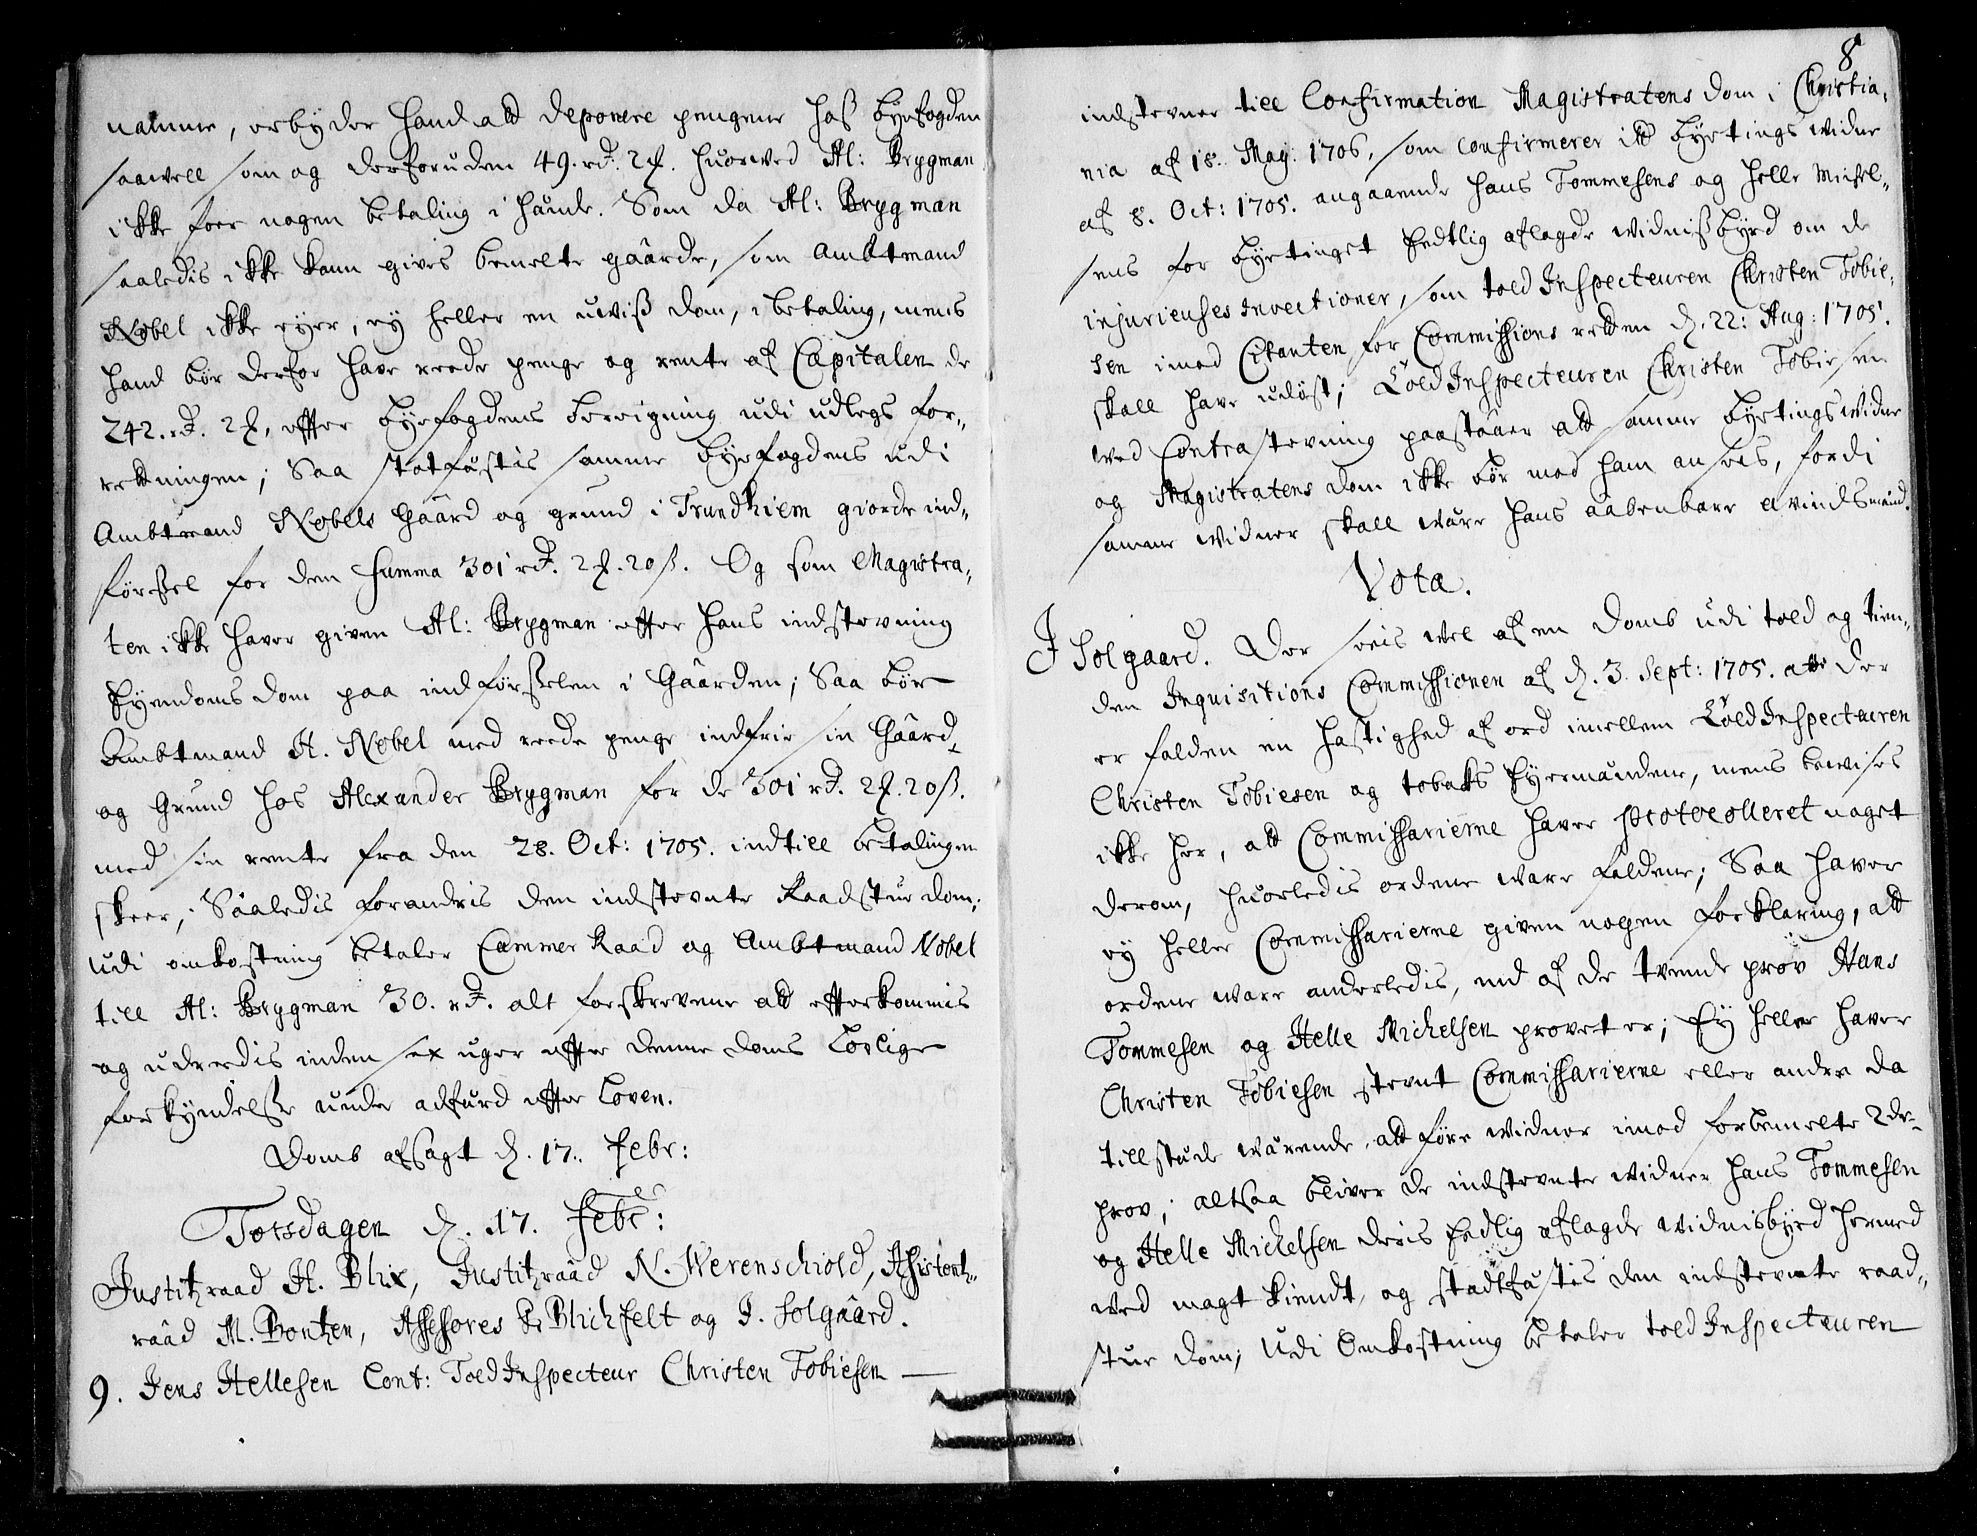 namme, erbyder hand att deponere pengene hoß byefogden
saavell som og derforuden 49. rd. 2 ℔. huorved Al: Brygman
ikke foer nogen betaling i hände. Som da Al: Brygman
saaledis ikke kann gives bemelte gaarde, som Ambtmand
Nobel ikke eyer, ey heller en uwiß dom, i betaling, mens
hand bør derfor have reede penge og rente af Capitalen de
242. rd. 2 ℔, effter byefogdens beregning udi udlegs for-
retningen; Saa statfästis samme byefogdens udi
Ambtmand Nobels Gaard og grund i Trundhiem giorde ind-
førssel for den Summa 301 rd. 2 ℔. 20 ß. Og som Magistra-
ten ikke haver given Al: Brygman effter hans indstevning
Eyendoms dom paa indførsselen i Gaarden; Saa bør
Ambtmand H. Nobel med reede penge indfrie sin Gaard
og Grund hos Alexander Brygman for de 301 rd. 2 ℔. 20 ß.
med sin rente fra den 28. Oct: 1705. indtill betalingen
skeer; Saaledis forandris den indstevnte Raadstue dom;
udi omkostning betaler Cammer Raad og Ambtmand Nobel
till Al: Brygman 30. rd. alt forskrevene att effterkommis
og udreedis inden sex uger effter denne doms Lovlige
forkyndelße under adfärd effter Loven.
Domb afsagt d. 17. Febr:
Torsdagen d. 17. Febr:
Justitzraad H. Blix, Justitzraad N. Werenschiold, Assistentz-
raad M. Bontzen, Assessores Blichfelt og J. Solgaard.
9. Jens Hellesen Cont: Toldinspecteur Christen Tobiesen
8
indstevner till Confirmation Magistratens dom i Christia-
nia af 18. Maj: 1706, som confirmerer itt byetings widne
af 8. Oct: 1705. angaaende Hans Tommesens og Helle Michel-
sens for byetinget Eedtlig aflagde widnißbyrd om de
injurieuses invectioner, som told Inspecteuren Christen Tobie-
sen imod Citanten for Commissions retten d. 22: Aug: 1705.
skall have udøst; Told Inspecteuren Christen Tobiesen
ved Contrastevning paastaaer att samme byetings widne
og Magistratens dom ikke bør mod ham ansees, fordi
samme widner skall wäre hans aabenbare avindsmänd.
Vota.
J Solgaard. Der sees vel af en Domb udi told og tien-
den Inquisitions Commissionen af d. 3. Sept: 1705. att der
er falden en hastighed af ord imellem Told Inspecteuren
Christen Tobiesen og tobaks Eyermändene, mens bewises
ikke her, att Commissarierne haver protocolleret noget
derom, huorledis ordene ware faldene; Saa haver
ey heller Commissarierne given nogen forklaring, att
ordene ware anderledis, end af de tvende prov Hans
Tommesen og Helle Michelsen provet er; Ey heller haver
Christen Tobiesen stevnt Commissarierne eller andre da
tillstede wärende, att føre widner imod forbemelte 2de
prov; altsaa bliver de indstevnte widner Hans Tommesen
og Helle Michelsen deris Eedlig aflagde widnisbyrd hermed
ved magt kiendt, og stadfästis den indstevnte raad-
stue dom; Udi Omkostning betaler told Inspecteuren